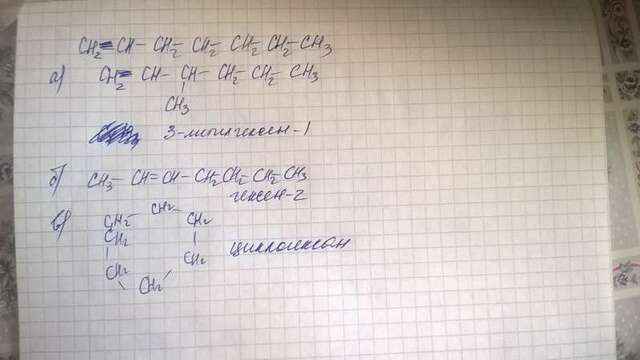 CH₂=CH-CH₂-CH₂-CH₂-CH₂-CH₃
а) CH₂=CH-CH-CH₂-CH₂-CH₃
CH₃
3-метилгексен-1
б) CH₃-CH=CH-CH₂-CH₂-CH₂-CH₃
гексен-2
в) CH₂ CH₂ CH₂
CH₂
CH₂ циклогексан
CH₂ CH₂